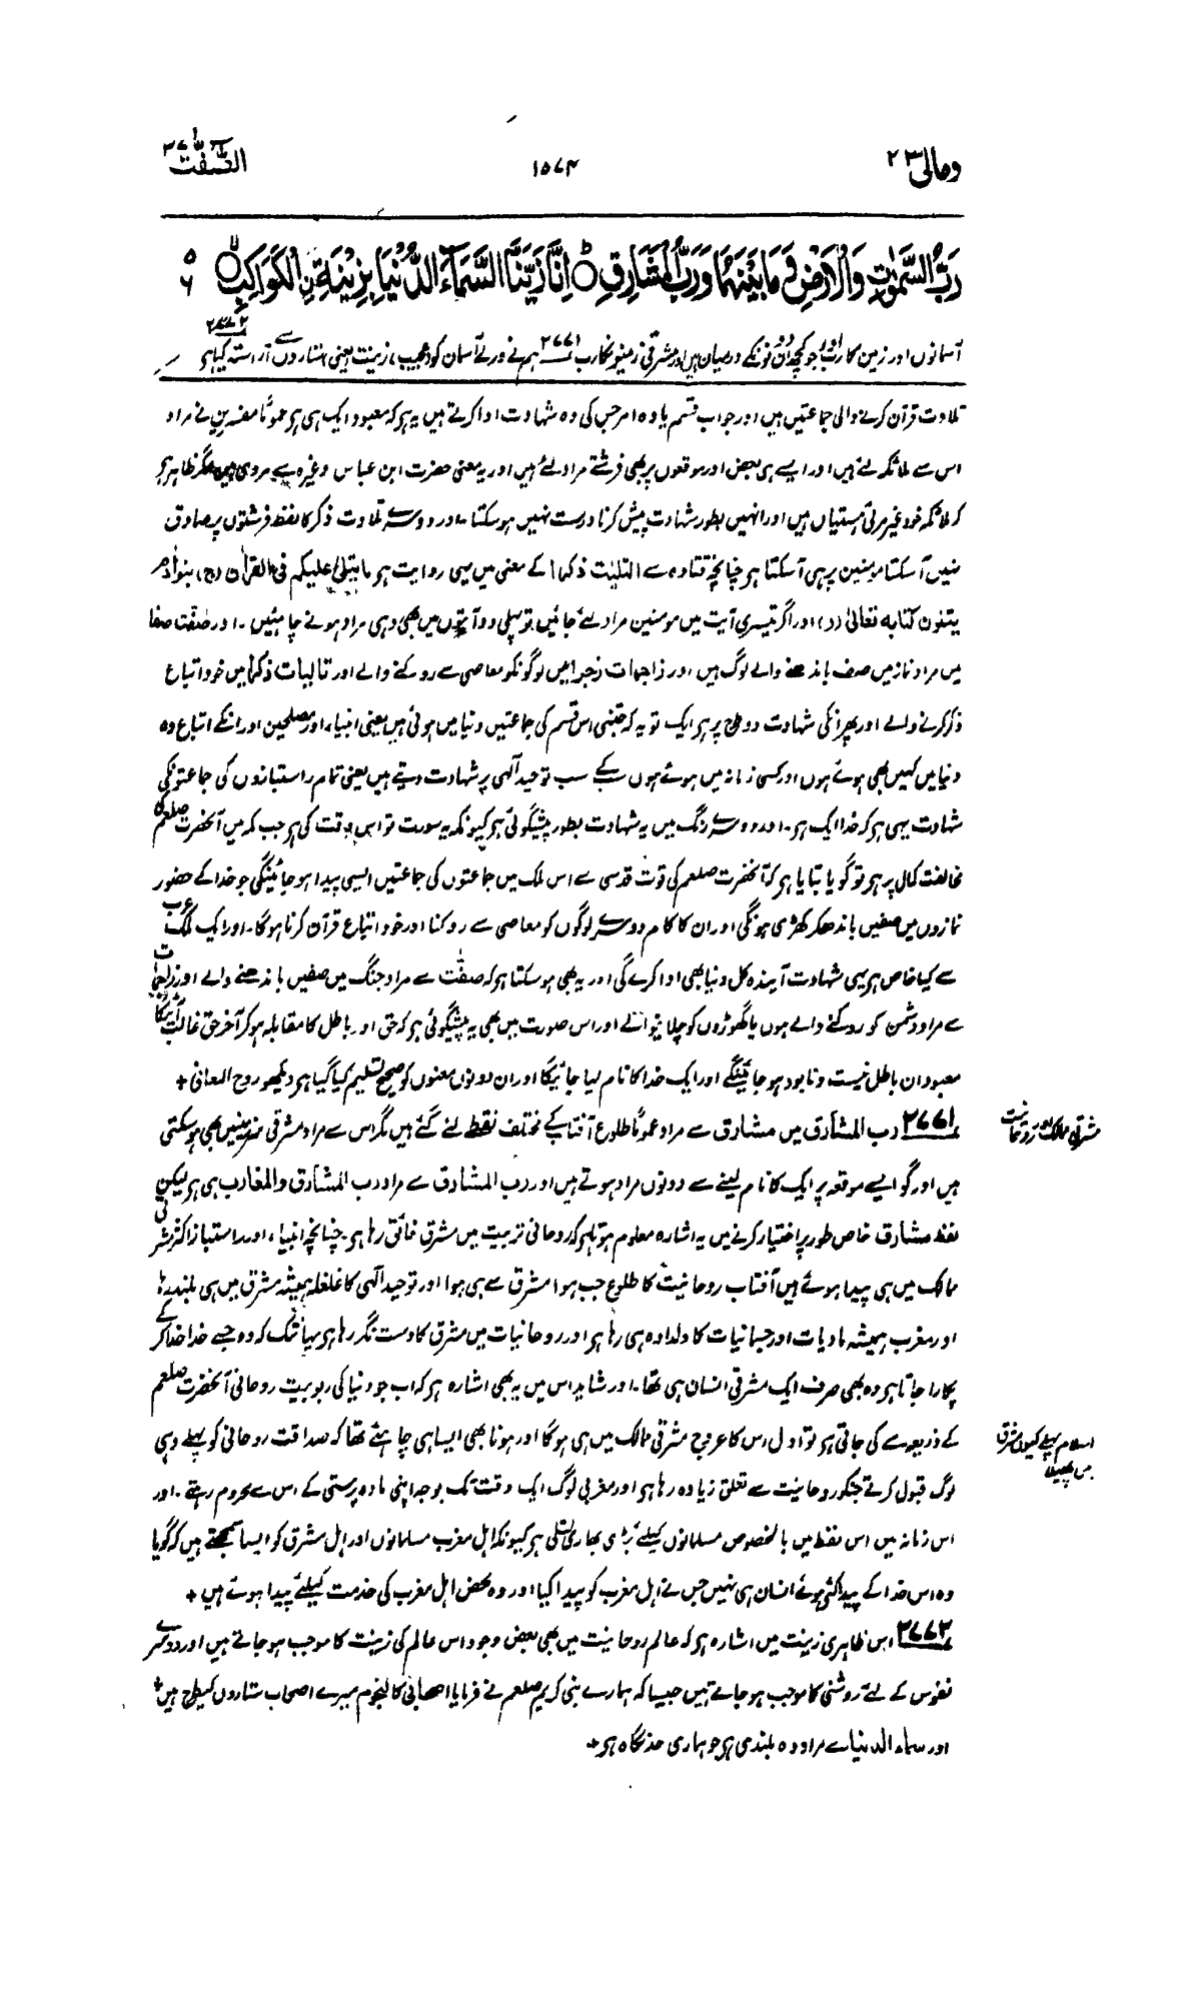 ومالی ۲۳
۱۵۷۴
الصّٰفّٰت ۳۷
رَبُّ السَّمٰوٰتِ وَالْاَرْضِ وَمَا بَيْنَهُمَا وَرَبُّ الْمَشَارِقِ ۝ اِنَّا زَيَّنَّا السَّمَآءَ الدُّنْيَا بِزِيْنَةِ ِۨالْكَوَاكِبِ ۝ ۵ ۶
آسمانوں اور زمین کا رب اور جو کچھ ان دونوں کے درمیان ہیں اور مشرقی زمینوں کا رب ۲۷۷۱ ہم نے ورلے آسمان کو (عجیب) زینت یعنی ستاروں سے آراستہ کیا ہے ۲۷۷۲
تلاوت قرآن کرنے والی جماعتیں ہیں اور جواب قسم یا وہ امر جس کی وہ شہادت ادا کرتے ہیں یہ ہے کہ معبود ایک ہی ہے عموماً مفسرین نے مراد
اس سے ملائکہ لئے ہیں اور ایسے ہی بعض اور موقعوں پر بھی فرشتے مراد لئے ہیں اور یہ معنی حضرت ابن عباس وغیرہ سے مروی ہیں مگر ظاہر ہے
کہ ملائکہ خود غیر مرئی ہستیاں ہیں اور انہیں بطور شہادت پیش کرنا درست نہیں ہو سکتا۔ اور دوسرے تلاوت ذکر کا لفظ فرشتوں پر صادق
نہیں آسکتا مومنین پر ہی آسکتا ہے چنانچہ قتادہ سے التلیٰت ذکرا کے معنی میں یہی روایت ہے ما یتلٰی علیکم فی القراٰن (ج) بنو اٰدم
یتلون کتابه تعالیٰ (د) اور اگر تیسری آیت میں مومنین مراد لئے جائیں تو پہلی دو آیتوں میں بھی وہی مراد ہونے چاہئیں۔ اور صٰفّٰت صفا
میں مراد نماز میں صف باندھنے والے لوگ ہیں اور زاجرات زجرا میں لوگوں کو معاصی سے روکنے والے اور تالیات ذکرا میں خود اتباع
ذکر کرنے والے اور پھر انکی شہادت دو طرح پر ہے ایک تو یہ کہ جتنی اس قسم کی جماعتیں دنیا میں ہوئی ہیں یعنی انبیاء اور مصلحین اور انکے اتباع وہ
دنیا میں کہیں بھی ہوئے ہوں اور کسی زمانہ میں ہوئے ہوں سب کے سب توحید الٰہی پر شہادت دیتے ہیں یعنی تمام راستبازوں کی جماعتوں کی
شہادت یہی ہے کہ خدا ایک ہے۔ اور دوسرے رنگ میں یہ شہادت بطور پیشگوئی ہے کیونکہ یہ سورت تو اس وقت کی ہے جب مکہ میں آنحضرت صلعم کی
مخالفت کمال پر ہے تو گویا بتایا ہے کہ آنحضرت صلعم کی قوت قدسی سے اس ملک میں جماعتوں کی جماعتیں ایسی پیدا ہو جائینگی جو خدا کے حضور
نمازوں میں صفیں باندھ کر کھڑی ہونگی اور ان کا کام دوسرے لوگوں کو معاصی سے روکنا اور خود اتباع قرآن کرنا ہو گا۔ اور ایک ملک عرب
سے کیا خاص ہے یہی شہادت آیندہ کل دنیا بھی ادا کرے گی اور یہ بھی ہو سکتا ہے کہ صٰفّٰت سے مراد جنگ میں صفیں باندھنے والے اور زاجرات
سے مراد دشمن کو روکنے والے ہوں یا گھوڑوں کو چلانیوالے اور اس صورت میں بھی یہ پیشگوئی ہے کہ حق اور باطل کا مقابلہ ہو کر آخر حق غالب آئیگا
معبودان باطل نیست و نابود ہو جائینگے اور ایک خدا کا نام لیا جائیگا اور ان دونوں معنوں کو صحیح تسلیم کیا گیا ہے دیکھو روح المعانی ٭
۲۷۷۱ رب المشارق میں مشارق سے مراد عموماً طلوع آفتاب کے مختلف نقطے لئے گئے ہیں مگر اس سے مراد مشرقی زمینیں بھی ہو سکتی
مشرقی ممالک اور روحانیت
ہیں اور گو ایسے موقعہ پر ایک کا نام لینے سے دونوں مراد ہوتے ہیں اور رب المشارق سے مراد رب المشارق والمغارب ہی ہے لیکن
لفظ مشارق خاص طور پر اختیار کرنے میں یہ اشارہ معلوم ہوتا ہے کہ روحانی تربیت میں مشرق فائق رہا ہے۔ چنانچہ انبیاء اور راستباز اکثر مشرقی
ممالک میں ہی پیدا ہوئے ہیں آفتاب روحانیت کا طلوع جب ہوا مشرق سے ہی ہوا اور توحید الٰہی کا غلغلہ ہمیشہ مشرق میں ہی بلند رہا
اور مغرب ہمیشہ مادیات اور جسمانیات کا دلدادہ ہی رہا ہے اور روحانیات میں مشرق کا دست نگر رہا ہے یہانتک کہ وہ جسے خدا خدا کر کے
پکارا جاتا ہے وہ بھی صرف ایک مشرقی انسان ہی تھا۔ اور شاید اس میں یہ بھی اشارہ ہے کہ اب جو دنیا کی ربوبیت روحانی آنحضرت صلعم
کے ذریعہ سے کی جاتی ہے تو اول اس کا عروج مشرقی ممالک میں ہی ہو گا اور ہونا بھی ایسا ہی چاہئے تھا کہ صداقت روحانی کو پہلے وہی
اسلام پہلے کیوں مشرق
میں پھیلا
لوگ قبول کرتے جنکو روحانیت سے تعلق زیادہ رہا ہے اور مغربی لوگ ایک وقت تک بوجہ اپنی مادہ پرستی کے اس سے محروم رہتے۔ اور
اس زمانہ میں اس لفظ میں بالخصوص مسلمانوں کیلئے بڑی بھاری تسلی ہے کیونکہ اہل مغرب مسلمانوں اور اہل مشرق کو ایسا سمجھتے ہیں کہ گویا
وہ اس خدا کے پیدا کئے ہوئے انسان ہی نہیں جس نے اہل مغرب کو پیدا کیا اور وہ محض اہل مغرب کی خدمت کیلئے پیدا ہوئے ہیں ٭
۲۷۷۲ اس ظاہری زینت میں اشارہ ہے کہ عالم روحانیت میں بھی بعض وجود اس عالم کی زینت کا موجب ہو جاتے ہیں اور دوسرے
نفوس کے لئے روشنی کا موجب ہو جاتے ہیں جیسا کہ ہمارے نبی کریم صلعم نے فرمایا اصحابی کالنجوم میرے اصحاب ستاروں کیطرح ہیں ٭
اور سماء الدنیا سے مراد وہ بلندی ہے جو ہماری حد نگاہ ہے ٭